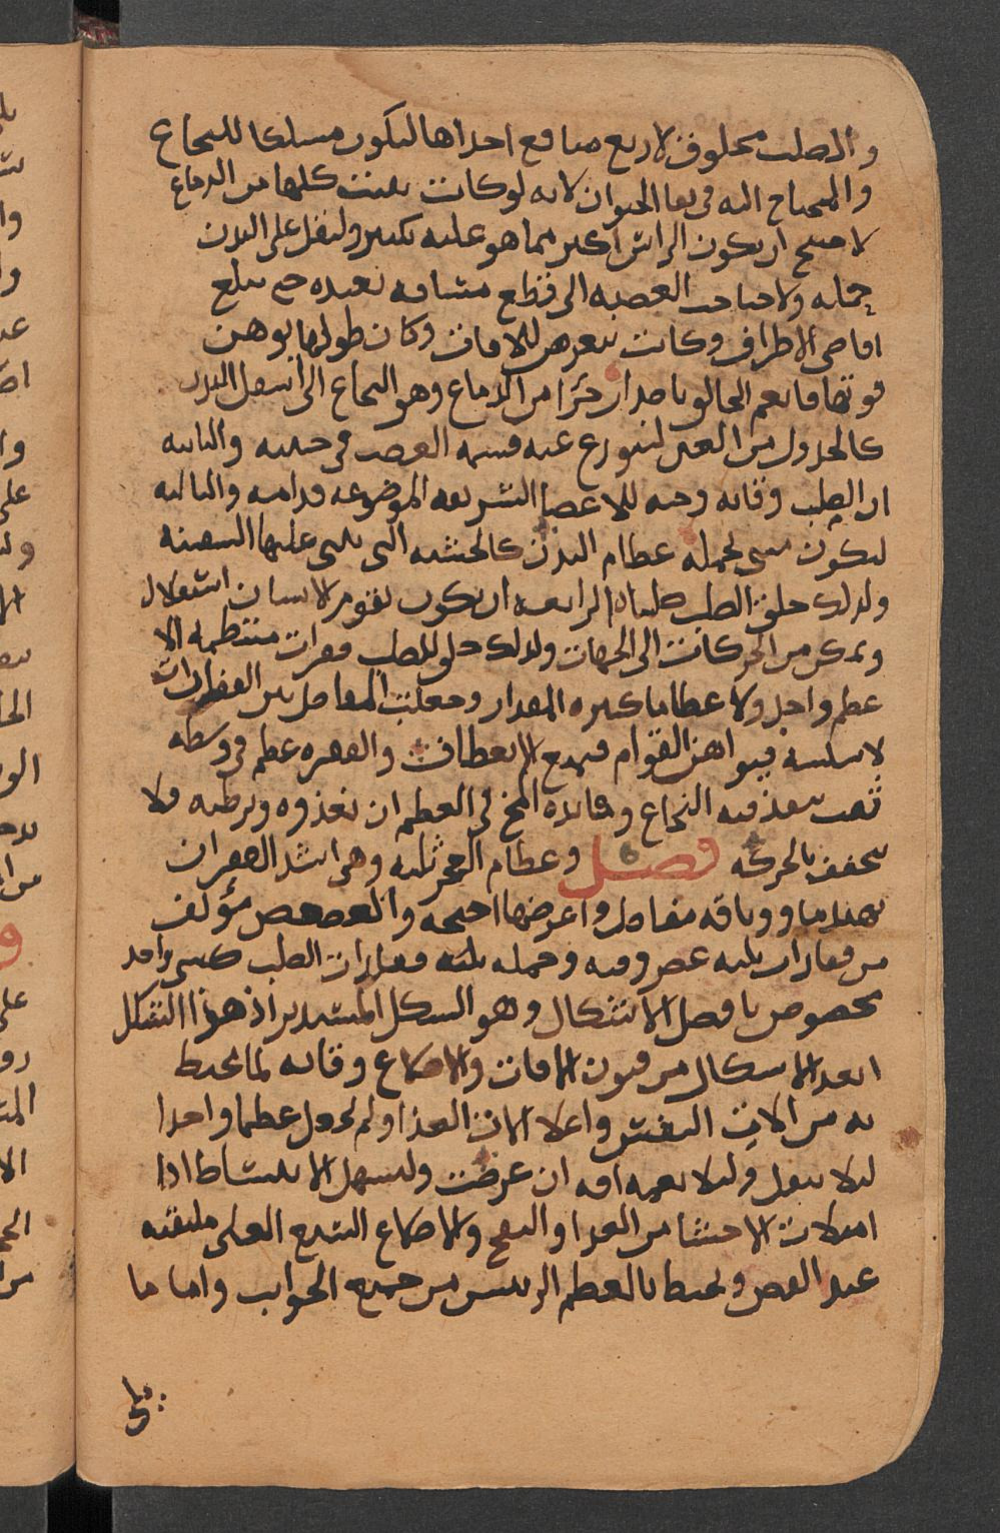 والصلب مخلوق لاربع منافع احداها ليكون مسلكا للنخاع
والمحتاج اليه فى بقا الحيوان لانه لو كانت نبتت كلها من الدماغ
لاحتيج ان يكون الراس اكبر مما هو عليه بكثير ولثقل على البدن
حمله ولاحتاجت العصبه الى قطع مسافه بعيده حتى تبلغ
اقاصى الاطراف وكانت تتعرض للافات وكان طولها يوهن
قوتها فانعم الخالق باصدار جزا من الدماغ وهو النخاع الى اسفل البدن
كالجدول من العين ليتوزع عنه قسمه العصب فى جنبيه والثانيه
ان الصلب وقايه وجنه للاعضا الشريفه الموضوعه قدامه والثالثه
ليكون مبنى لجمله عظام البدن كالخشبه التى تبنى عليها السفينه
ولذلك خلق الصلب صلبا والرابعه ان يكون لقوم الانسان استقلال
وتمكن من الحركات الى الجهات ولذلك خلق للصلب فقرات منتظمه لا
عظم واحد ولا عظاما كبيره المقدار وجعلت المفاصل بين الفقرات
لا سلسه فيواهن القوام فيمنع الانعطاف والفقره عظم فى وسطه
ثقب ينفذ فيه النخاع وفائده المخ فى العظم ان يغذوه ويرطبه فلا
يجفف بالحركه فصل وعظام العجز ثلثه وهى اشد الفقرات
تهندما ووثاقه مفاصل واعرضها اجنحه والعصعص مؤلف
من فقارات ثلثه غضروفيه وجمله ثلثه فقارات الصلب كشى واحد
مخصوص بافضل الاشكال وهو الشكل المستدير اذ هذا الشكل
ابعد الاشكال من قبول الافات والاضلاع وقايه لما تحيط
به من الات التنفس واعلا الات الغذا ولم تجعل عظما واحدا
ليلا يثقل وليلا تعمه افه ان عرضت وليسهل الانبساط اذا
امتلات الاحشا من الغذا والنفخ والاضلاع السبع العلى ملتقيه
عند القص وتحيط بالعظم الرئيس من جميع الجوانب واما ما
يلى